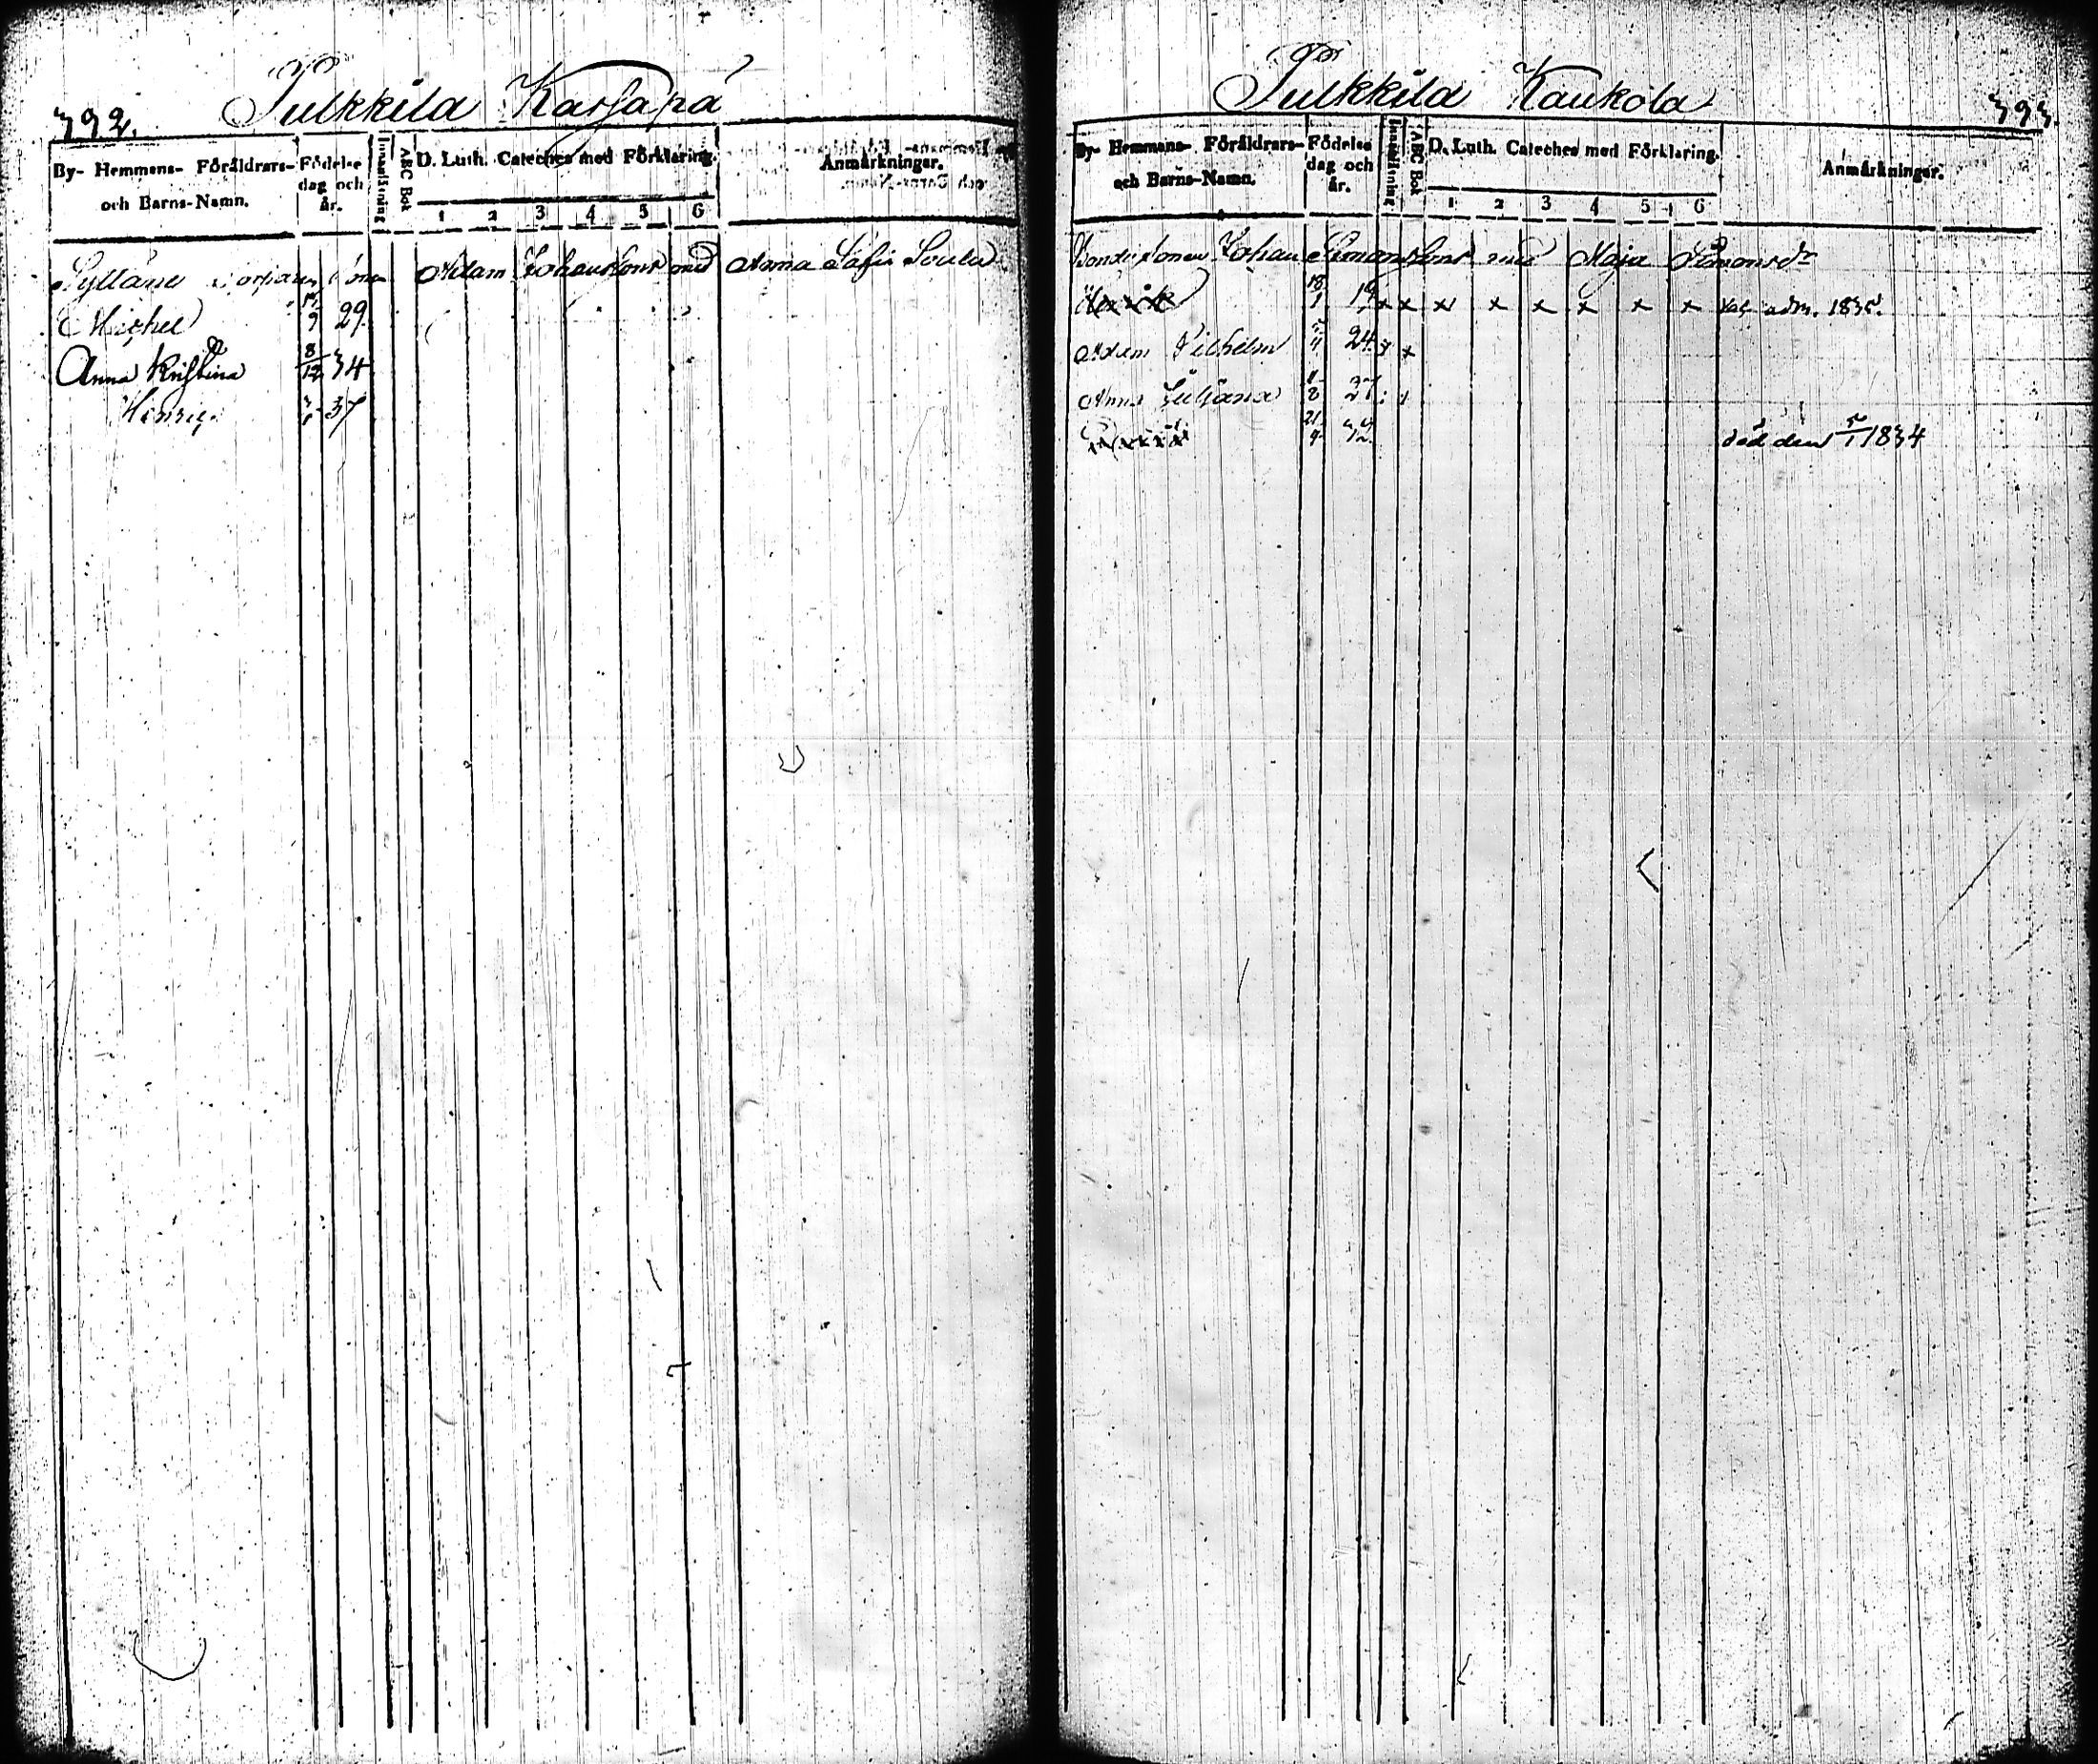 392.
Pulkkila Karjapä
By- Hemmens- Föräldrars- och Barns-Namn.
Födelse dag och år.
Innanläsning
ABC Bok
D. Luth. Cateches med Förklaring.
1 2 3 4 5 6
Anmärkningar.
Adam Johansson med Anna Safia
Michel 9 29.
Anna Kristina 8/12 34
Henric 37
Pulkkila Kaukola
393.
By- Hemmens- Föräldrars- och Barns-Namn.
Födelse dag och år.
Innanläsning
ABC Bok
D. Luth. Cateches med Förklaring.
1 2 3 4 5 6
Anmärkningar.
Bonde sonen Johan Simonsson med Maja Simonsdr
Henrik 18/1 19 x x x x x x x x adm. 1835.
Adam Vilhelm 24 x x
Anna Juliana 27
21/9 32 död den 5/1 1834